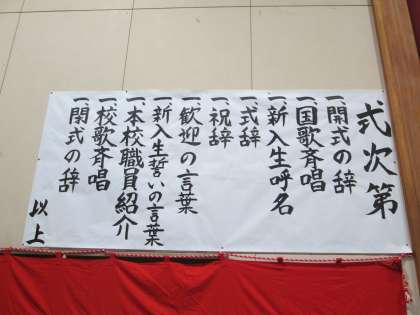 式次第
一、開式の辞
一、国歌斉唱
一、新入生呼名
一、式辞
一、祝辞
一、歓迎の言葉
一、新入生誓いの言葉
一、本校職員紹介
一、校歌斉唱
一、閉式の辞
以上